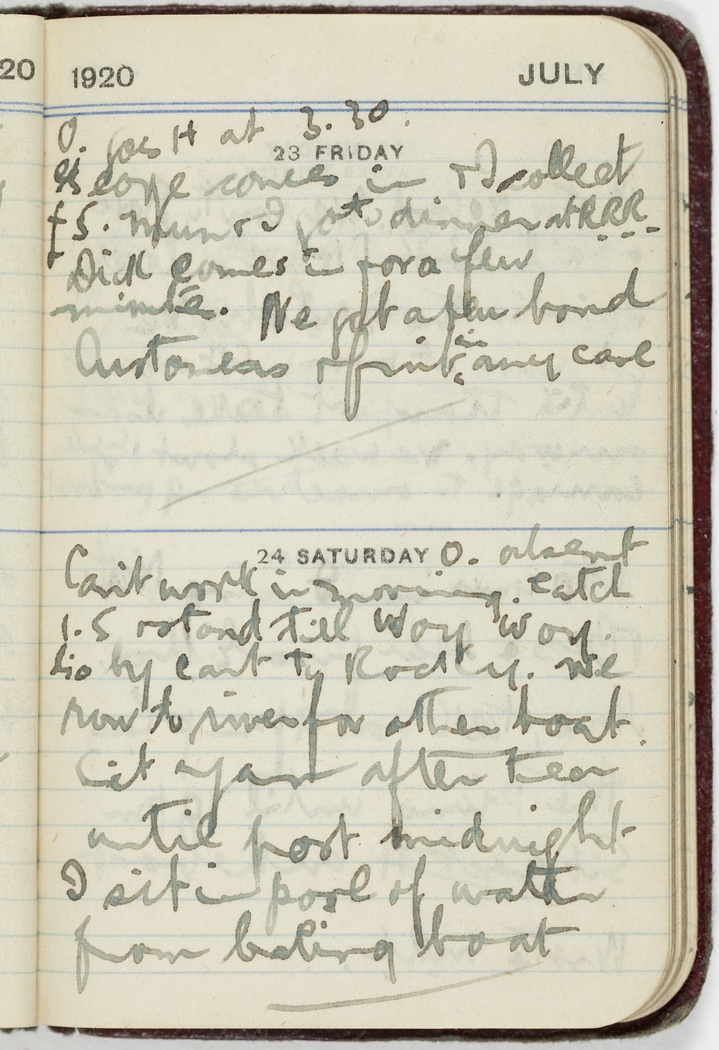 20
1920 JULY
O. goes H at 3.30.
23 FRIDAY
George comes in & I collect
£5. Mum & I got dinner at RRR
Dick comes in for a few
minute. We got a few bond
Customers & finit any care
24 SATURDAY O. absent
Can't work in morning. Catch
1.5 & stand till Woy Woy.
Go by cart to Rocky. We
row to river for other boat.
Sit & yarn after tea
until past midnight
I sit in pool of water
from baling boat